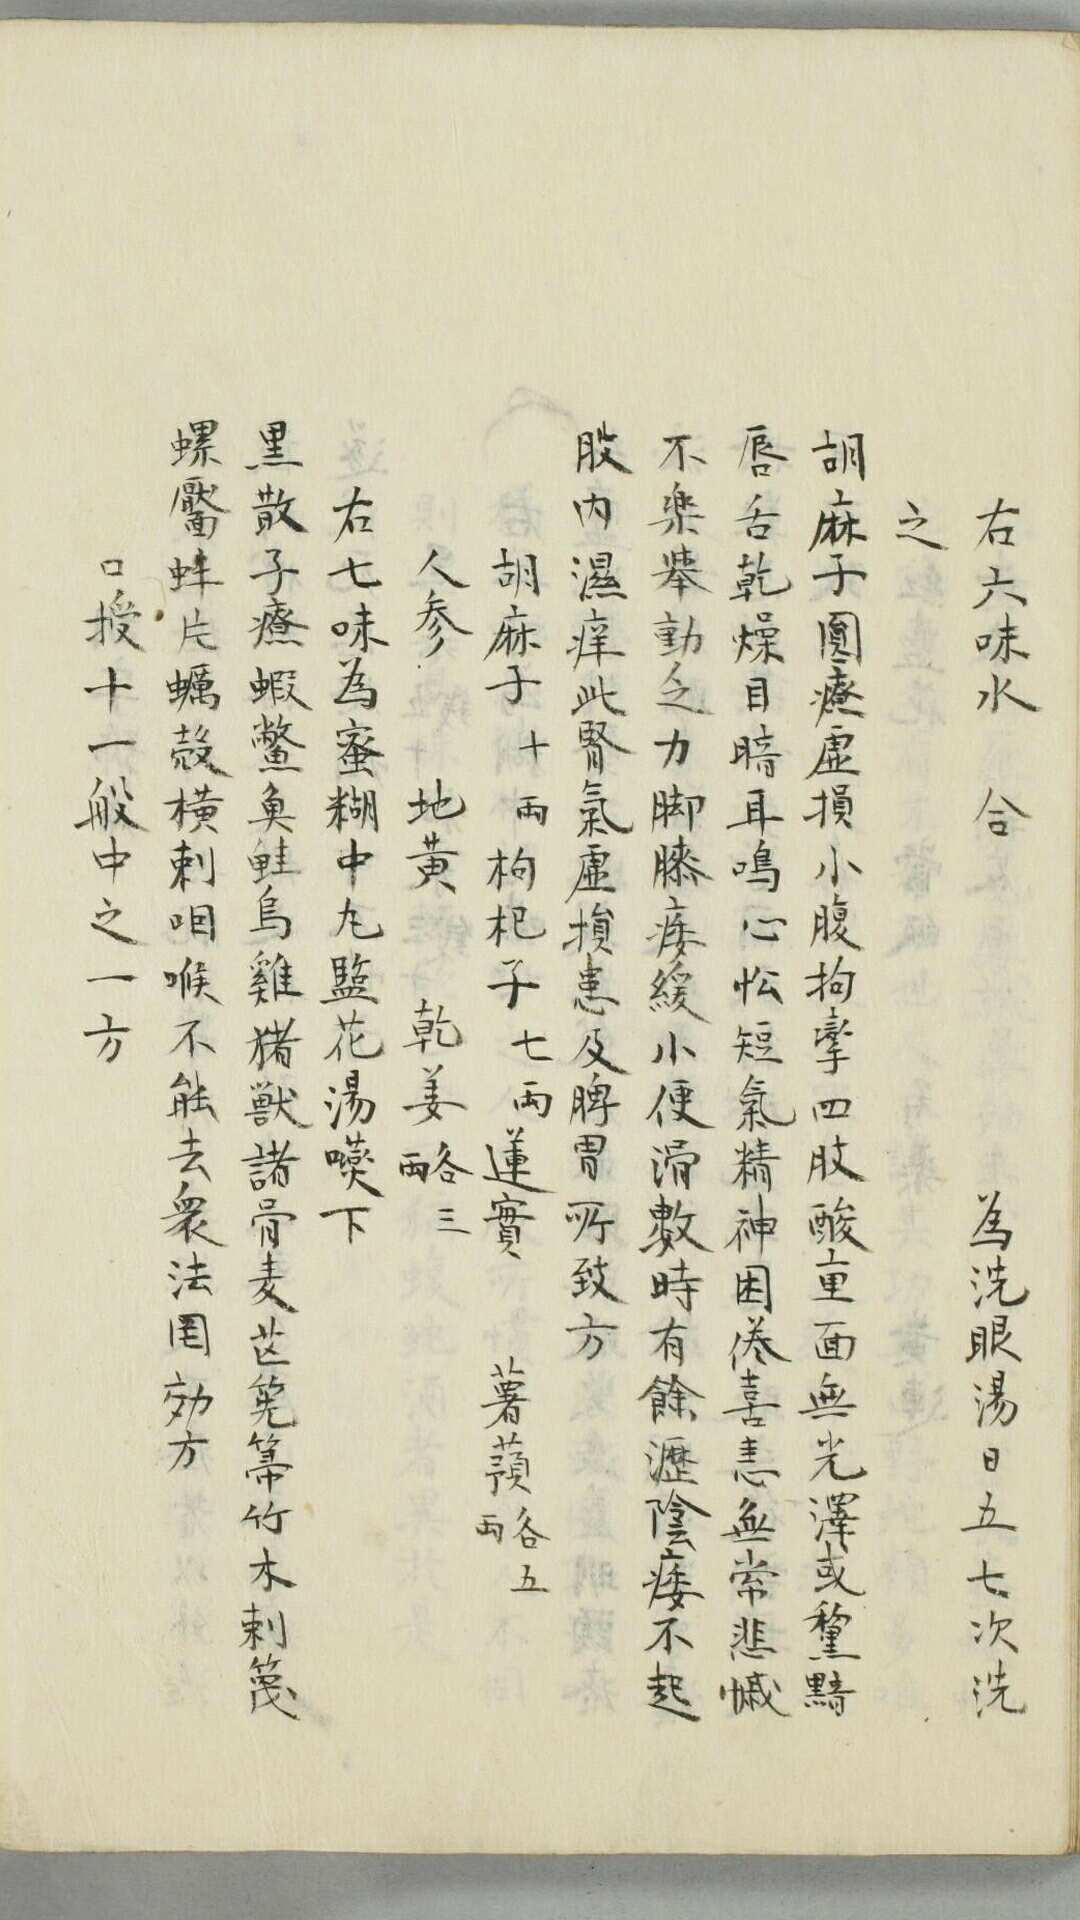 右六味水一合為洗眼湯日五七次洗
之
胡麻子圓療虛損小腹拘攣四肢酸重面無光澤或黧黯
唇舌乾燥目暗耳鳴心忪短氣精神困倦喜恚無常悲慽
不樂舉動乏力脚膝痿緩小便滑數時有餘瀝陰痿不起
股内濕痒此腎氣虛損患及脾胃所致方
胡麻子十兩枸杞子七兩蓮實 薯蕷各五兩
人参 地黃 乾姜各三兩
右七味為蜜糊中丸監花湯嚥下
黒散子療蝦鱉魚鮭烏雞猪獣諸骨麦芒箒竹木刺篾
螺靨蚌片蠣殻橫刺咽喉不能去衆法罔効方
口授十一般中之一方